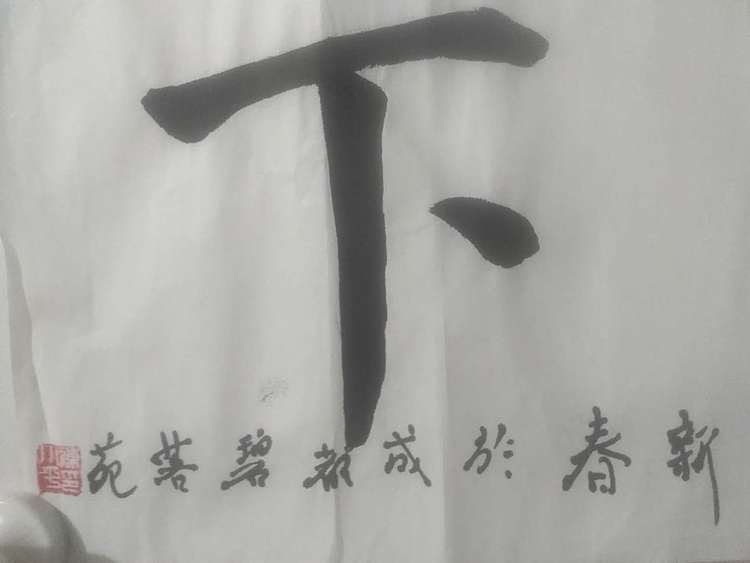 下
新春於成都碧苑